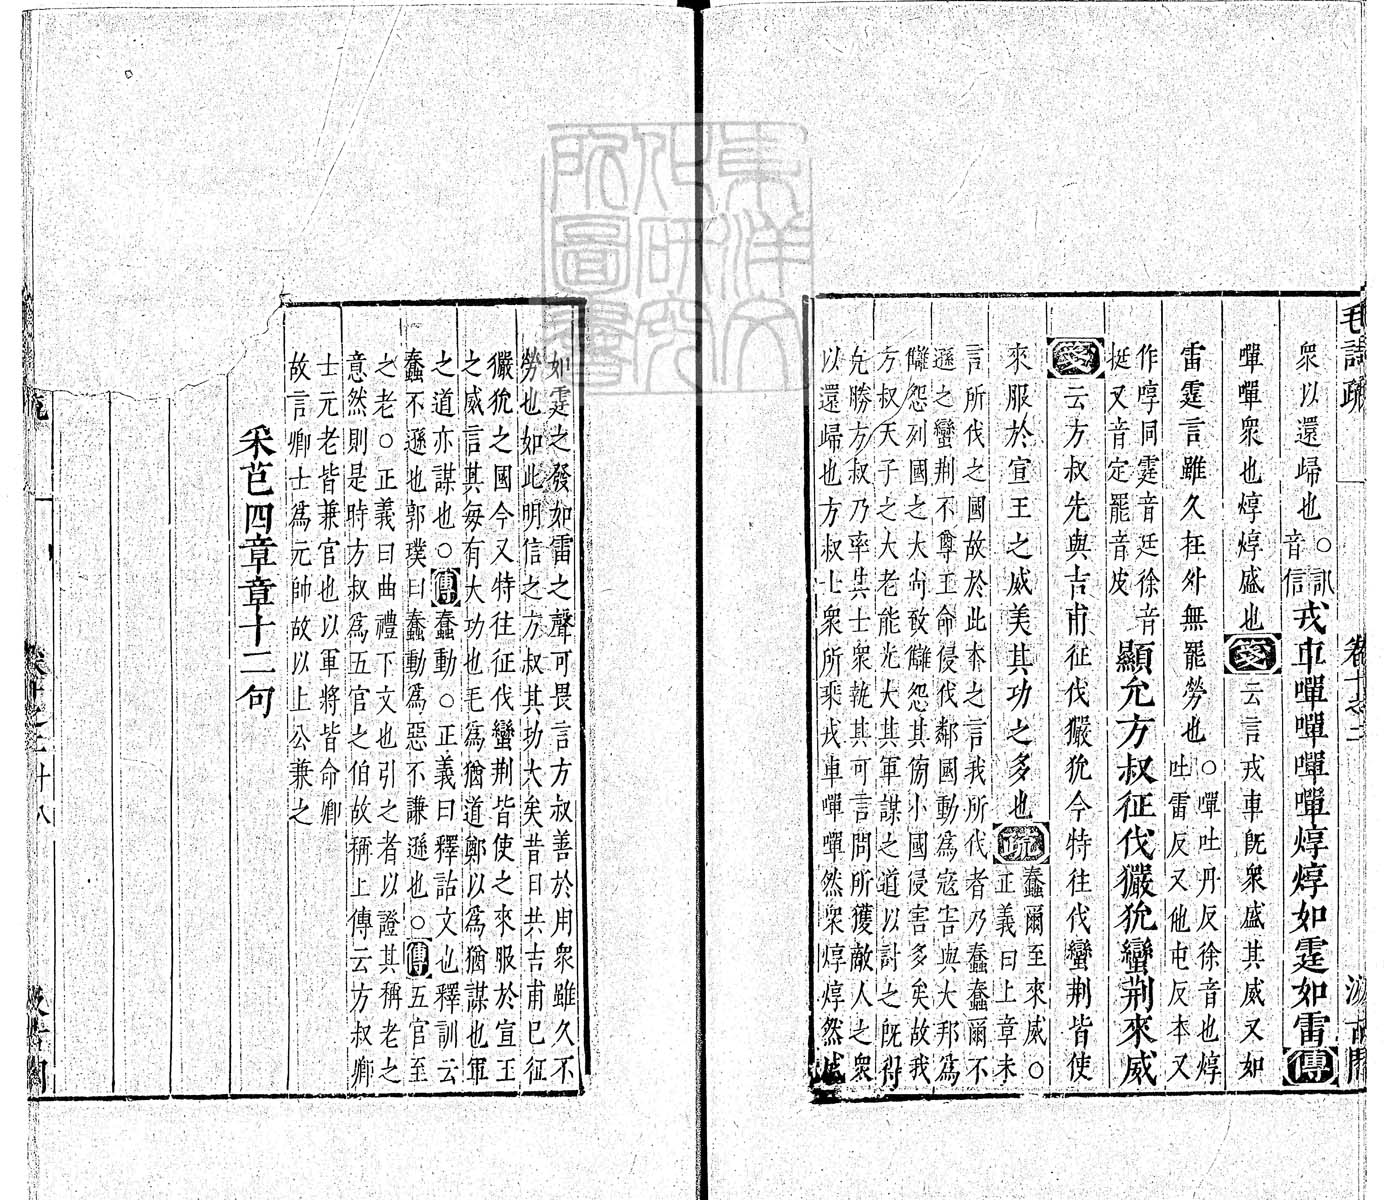 毛詩疏　卷十之二　汲古閣
衆以還歸也○訊音信戎車嘽嘽嘽嘽焞焞如霆如雷傳
嘽嘽衆也焞焞盛也箋云言戎車旣衆盛其威又如
雷霆言雖久在外無罷勞也○嘽吐丹反徐音也焞
吐雷反又他屯反本又
作啍同霆音廷徐音
挺又音定罷音皮顯允方叔征伐玁狁蠻荆來威
箋云方叔先與吉甫征伐玁狁今特往伐蠻荆皆使
來服於宣王之威美其功之多也疏蠢爾至來威○
正義曰上章未
言所伐之國故於此本之言我所伐者乃蠢蠢爾不
遜之蠻荆不尊王命侵伐鄰國動爲寇害與大邦爲
讎怨列國之大尚致讎怨其傍小國侵害多矣故我
方叔天子之大老能光大其軍謀之道以討之旣得
克勝方叔乃率其士衆執其可言問所獲敵人之衆
以還歸也方叔士衆所乘戎車嘽嘽然衆焞焞然盛
如霆之發如雷之聲可畏言方叔善於用衆雖久不
勞也如此明信之方叔其功大矣昔日共吉甫已征
玁狁之國今又特往征伐蠻荆皆使之來服於宣王
之威言其每有大功也毛爲猶道鄭以爲猶謀也軍
之道亦謀也○傳蠢動○正義曰釋詁文也釋訓云
蠢不遜也郭璞曰蠢動爲惡不謙遜也○傳五官至
之老○正義曰曲禮下文也引之者以證其稱老之
意然則是時方叔爲五官之伯故稱上傳云方叔卿
士元老皆兼官也以軍將皆命卿
故言卿士爲元帥故以上公兼之
采芑四章章十二句